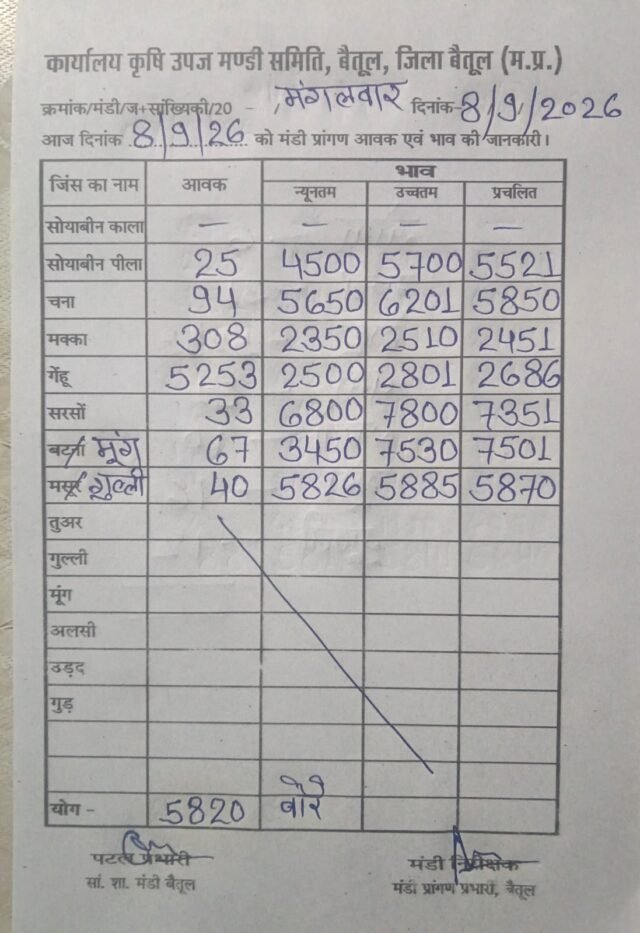 कार्यालय कृषि उपज मण्डी समिति, बैतूल, जिला बैतूल (म.प्र.)
क्रमांक/मंडी/ज+सांख्यिकी/20 - मंगलवार दिनांक-8/9/2026
आज दिनांक 8/9/26 को मंडी प्रांगण आवक एवं भाव की जानकारी।
जिंस का नाम आवक भाव
न्यूनतम उच्चतम प्रचलित
सोयाबीन काला — — — —
सोयाबीन पीला 25 4500 5700 5521
चना 94 5650 6201 5850
मक्का 308 2350 2510 2451
गेंहू 5253 2500 2801 2686
सरसों 33 6800 7800 7351
बटला मूंग 67 3450 7530 7501
मसूर गुल्ली 40 5826 5885 5870
तुअर
गुल्ली
मूंग
अलसी
उड़द
गुड़
योग - 5820 बोरे
पटल प्रभारी मंडी निरीक्षक
सां. शा. मंडी बैतूल मंडी प्रांगण प्रभारी, बैतूल